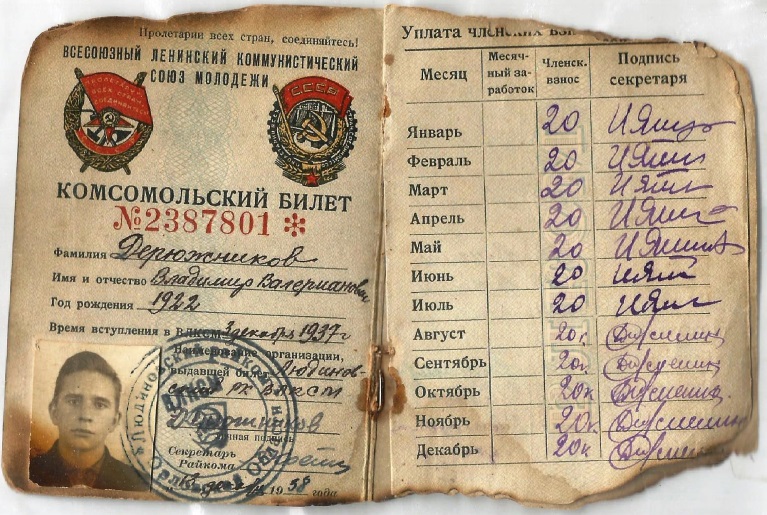 Пролетарии всех стран, соединяйтесь!
ВСЕСОЮЗНЫЙ ЛЕНИНСКИЙ КОММУНИСТИЧЕСКИЙ
СОЮЗ МОЛОДЕЖИ
СССР
КОМСОМОЛЬСКИЙ БИЛЕТ
№2387801 *
Фамилия Дерюжников
Имя и отчество Владимир Валерианович
Год рождения 1922
Время вступления в ВЛКСМ 3 декабря 1937 г
Наименование организации,
выдавшей билет Людинов-
РК ВЛКСМ
подпись
Секретарь
Райкома
года
Уплата членских
Месяц Месяч-ный за-работок Членск. взнос Подпись секретаря
Январь 20
Февраль 20
Март 20
Апрель 20
Май 20
Июнь 20
Июль 20
Август 20к
Сентябрь 20к
Октябрь 20к
Ноябрь 20к
Декабрь 20к